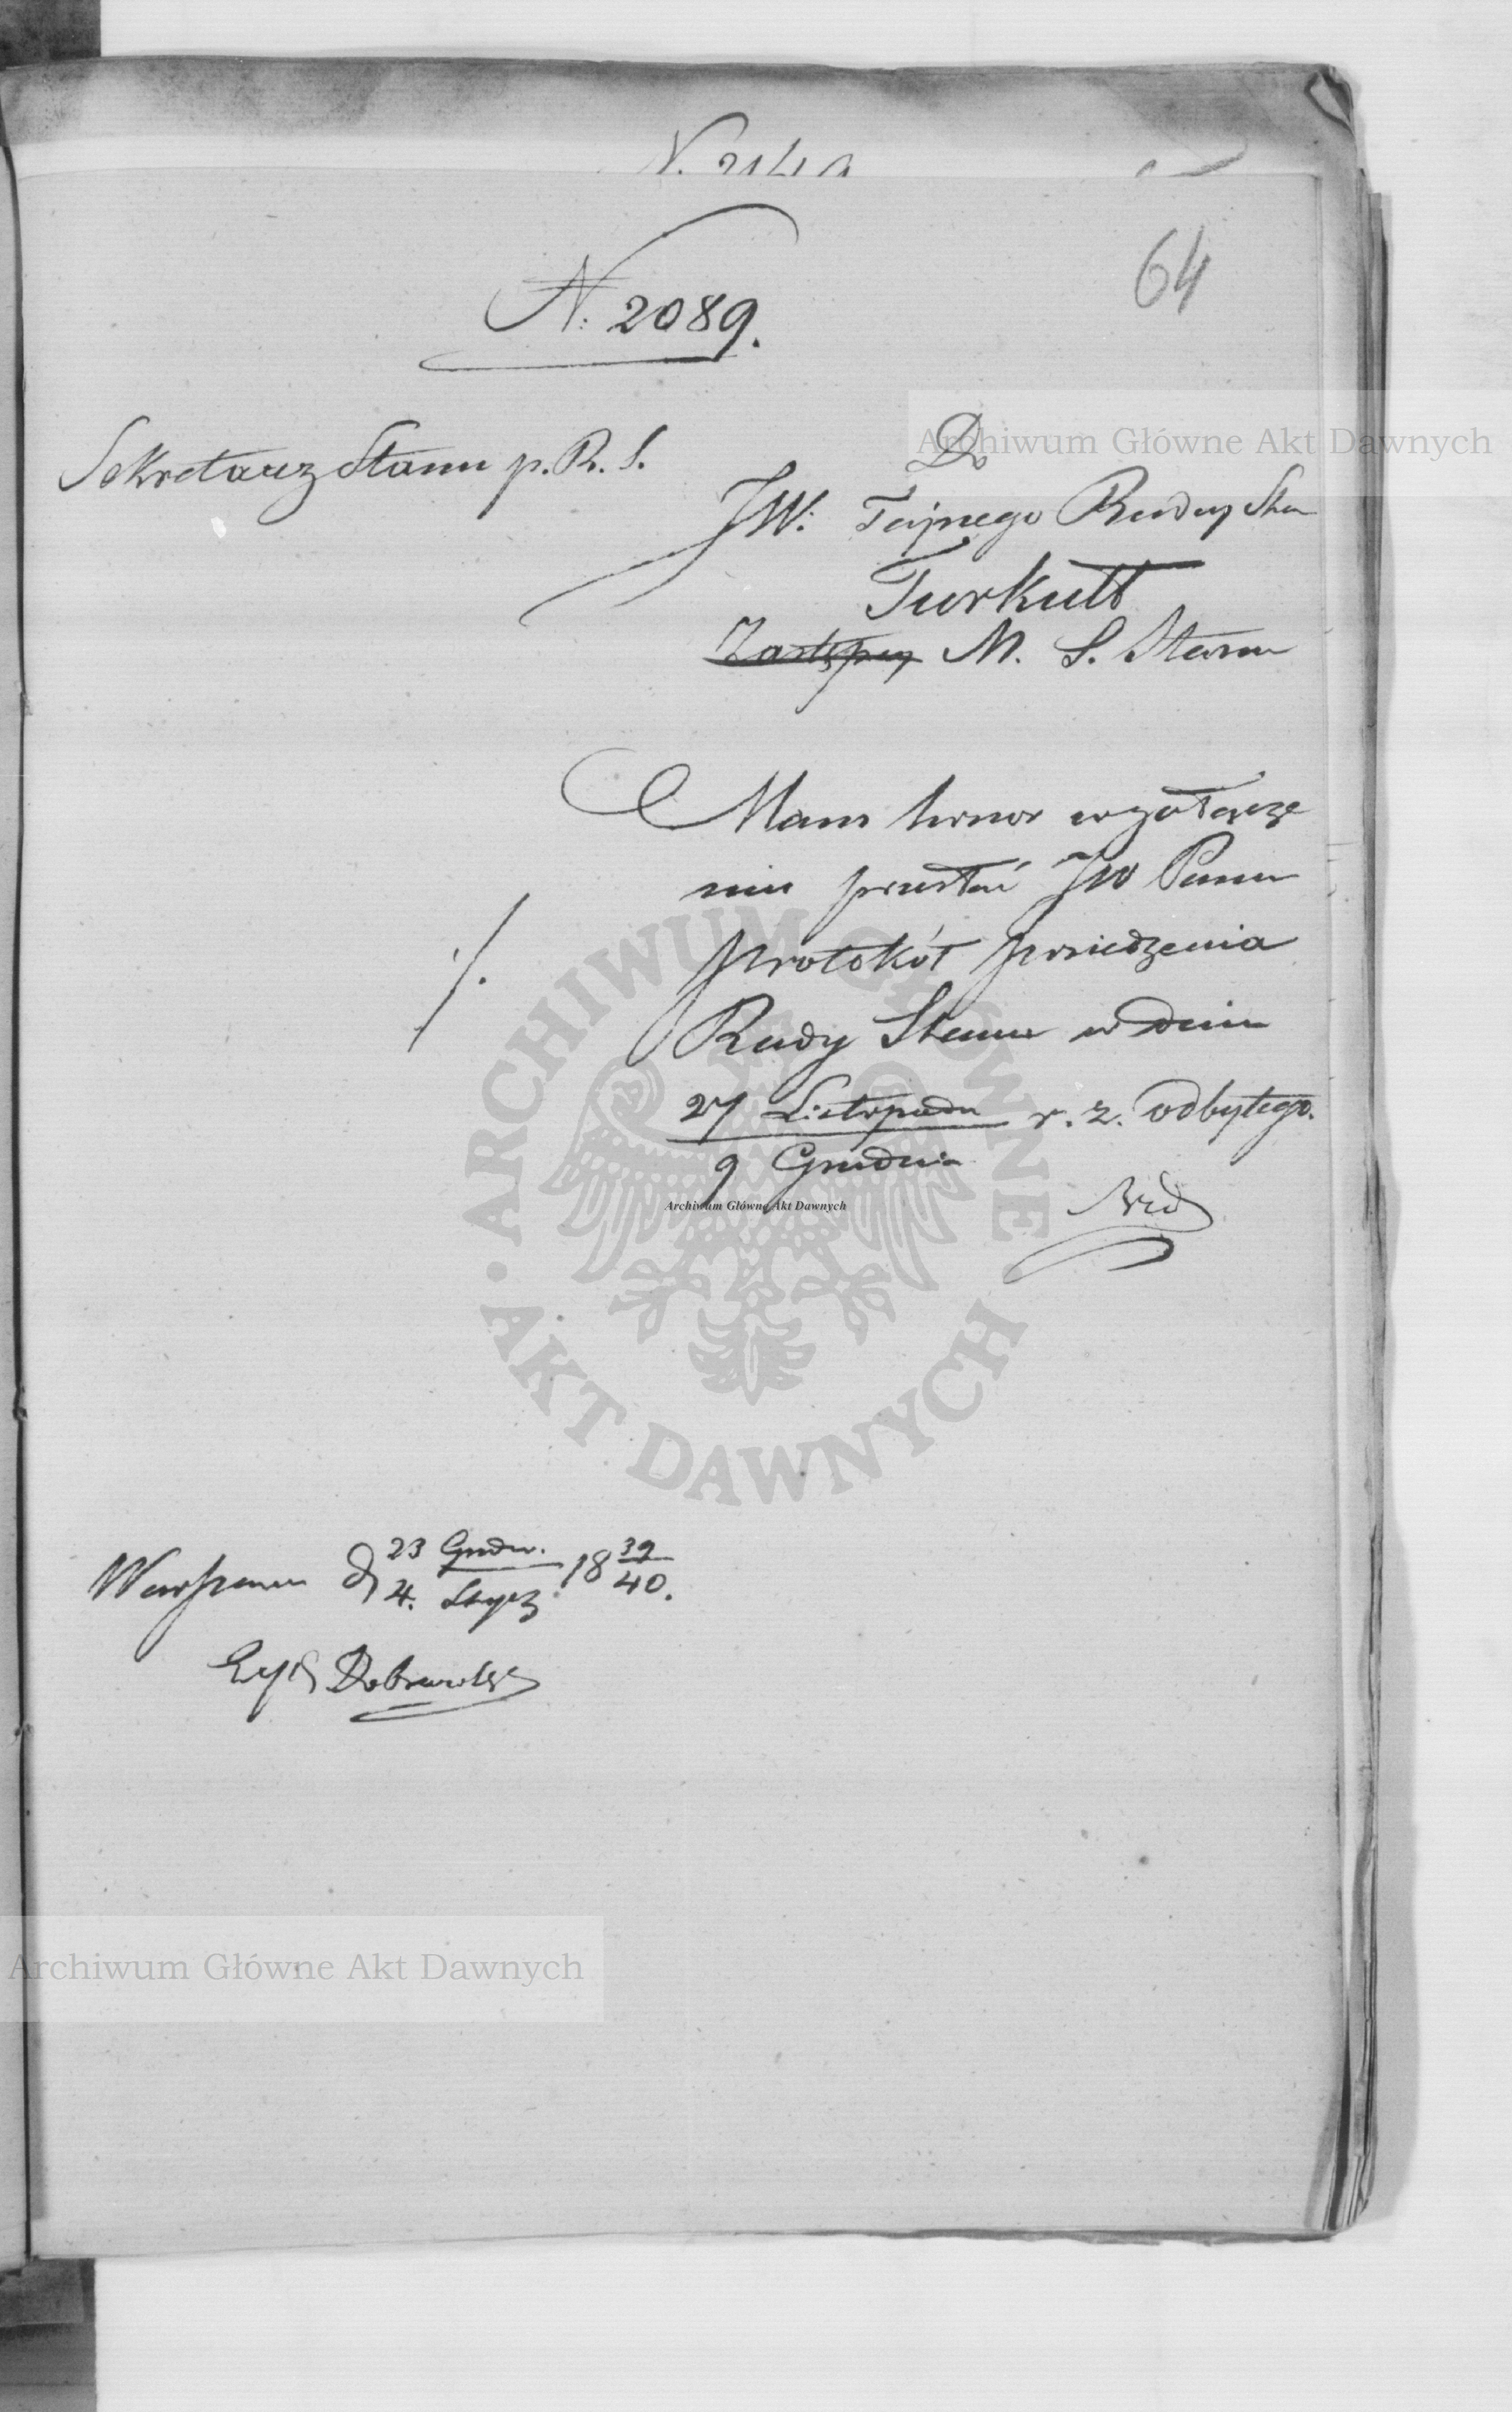 N. 2140
64
N: 2089.
Sekretarz Stanu p. R. S.
Do
JW: Tajnego Radcy Sta
Turkułł
Zastępcy M. S. Stanu
Mam honor w załącze
niu przesłać JW Panu
./.
protokół posiedzenia
Rady Stanu w dniu
27 Listopada r. z. odbytego.
9 Grudnia
Warszawa d 23 Grudn. 18 39
4. Stycz 40.
Dobrowolski
Archiwum Główne Akt Dawnych
ARCHIWUM GŁÓWNE AKT DAWNYCH
Archiwum Główne Akt Dawnych
Archiwum Główne Akt Dawnych